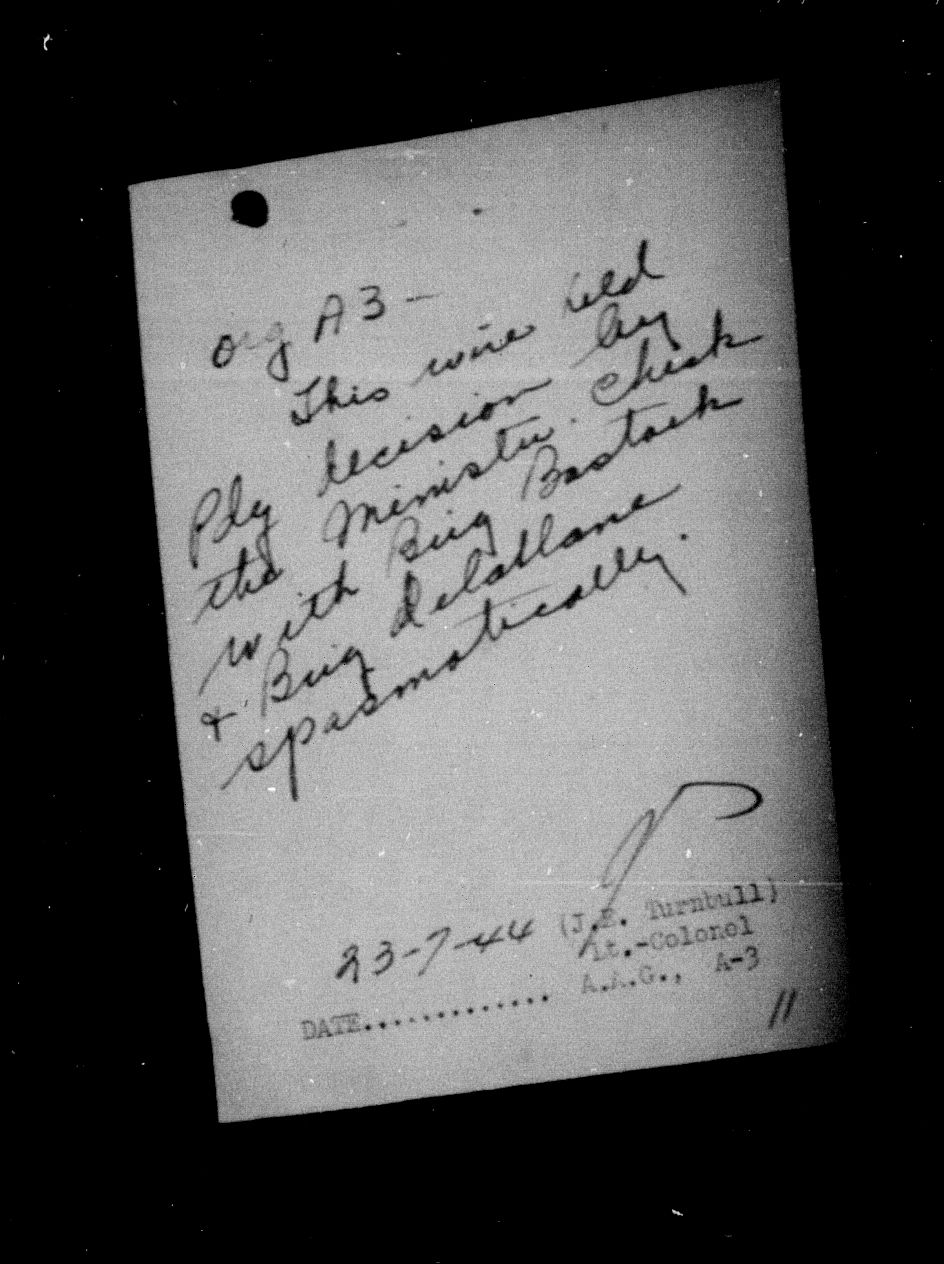 Org A3 -
This wire held
Pdg decision by
the Minister. Check
with Brig Bostock
& Brig DeLaLanne
spasmotically.
23-7-44 (J.E. Turnbull)
Lt.-Colonel
DATE............. A.A.G., A-3
11